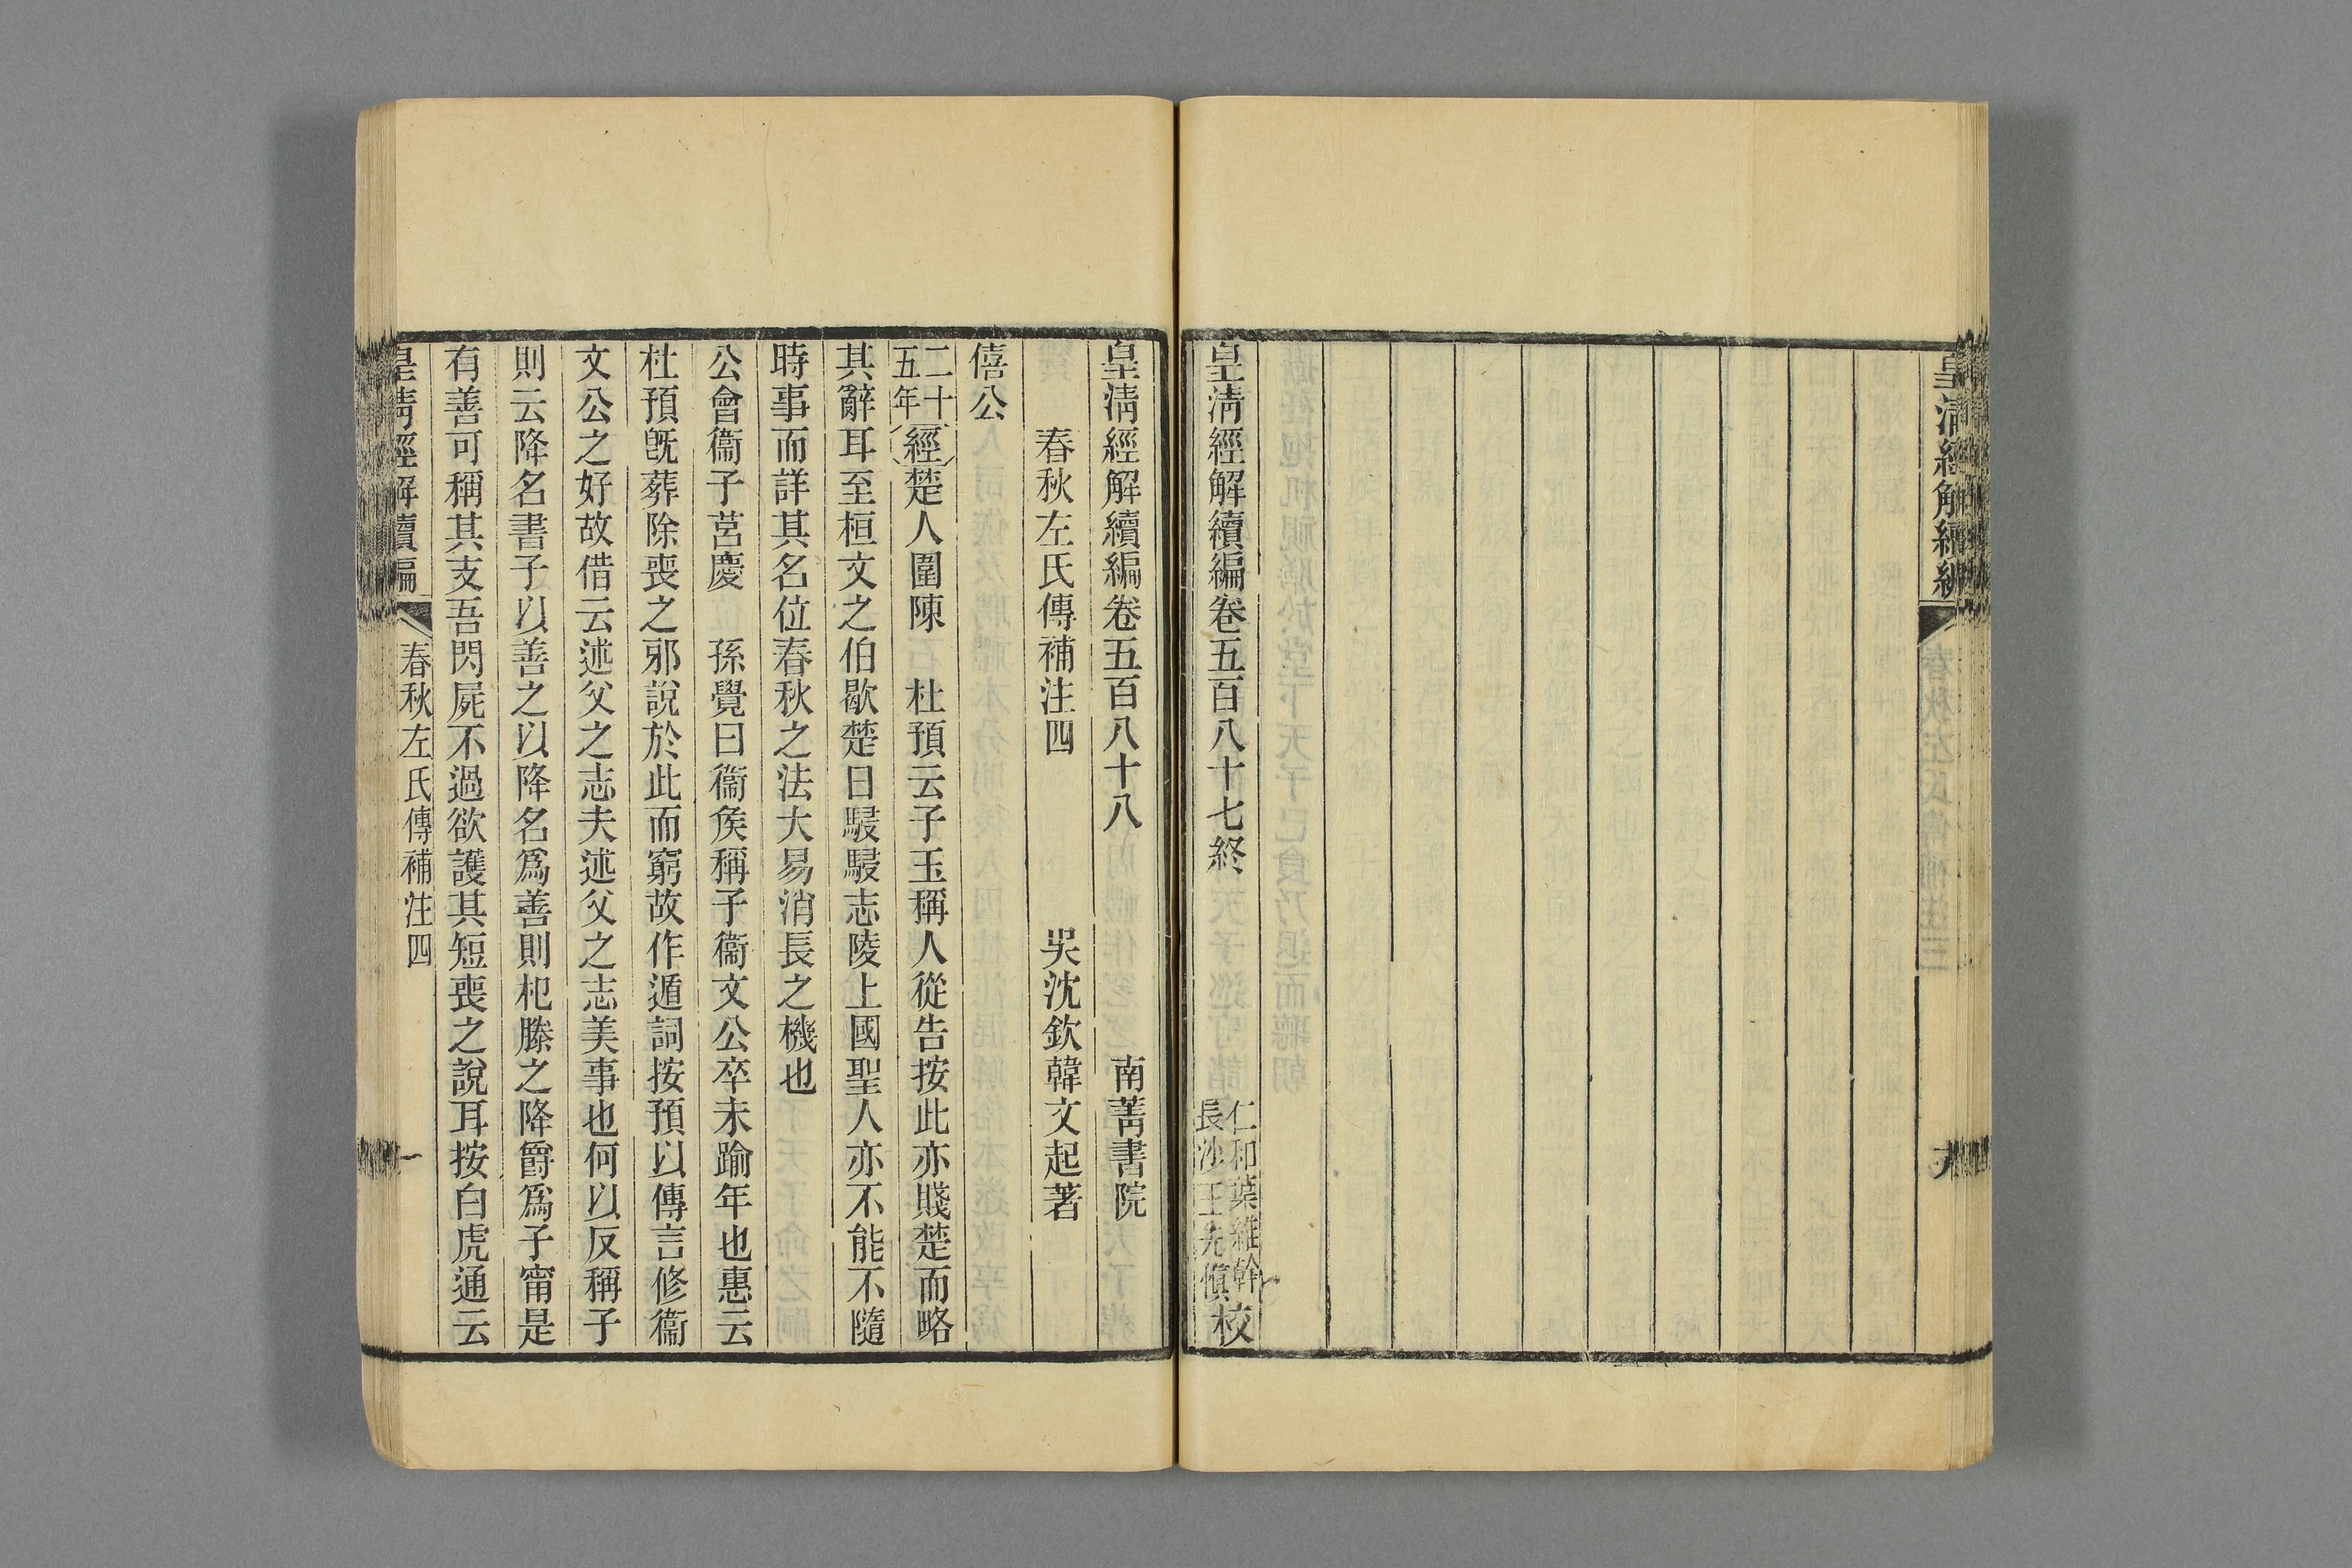 皇清經解續編
春秋左氏傳補注三
皇清經解續編卷五百八十七終
仁和葉維幹
長沙王先慎
校
皇清經解續編卷五百八十八
南菁書院
春秋左氏傳補注四
吳沈欽韓文起著
僖公
二十五年
經楚人圍陳
杜預云子玉稱人從告按此亦賤楚而略
其辭耳至桓文之伯歇楚日駸駸志陵上國聖人亦不能不隨
時事而詳其名位春秋之法大易消長之機也
公會衞子莒慶
孫覺曰衞矦稱子衞文公卒未踰年也惠云
杜預旣葬除喪之邪說於此而窮故作遁詞按預以傳言修衞
文公之好故借云述父之志夫述父之志美事也何以反稱子
則云降名書子以善之以降名爲善則杞滕之降爵爲子甯是
有善可稱其支吾閃屍不過欲護其短喪之說耳按白虎通云
皇清經解續編
春秋左氏傳補注四
一